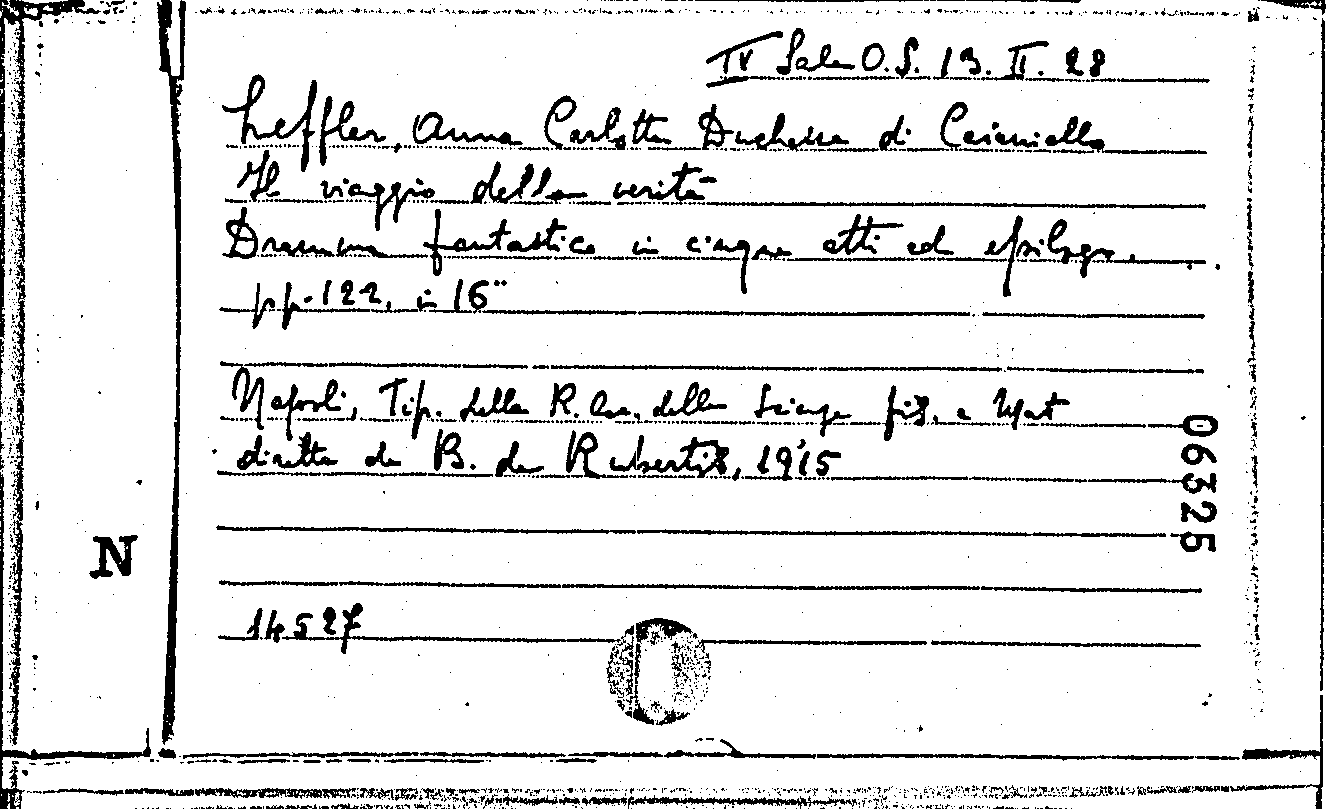 IV Sala O.S. 13. II. 28
Leffler, Anna Carlotta Duchessa di Caianiello
Il viaggio della verità
Dramma fantastico in cinque atti ed epilogo.
pp. 122, in 16°
Napoli, Tip. della R. Acc. delle Scienze fis. e Mat
diretta da B. de Rubertis, 1915
06325
N
14527